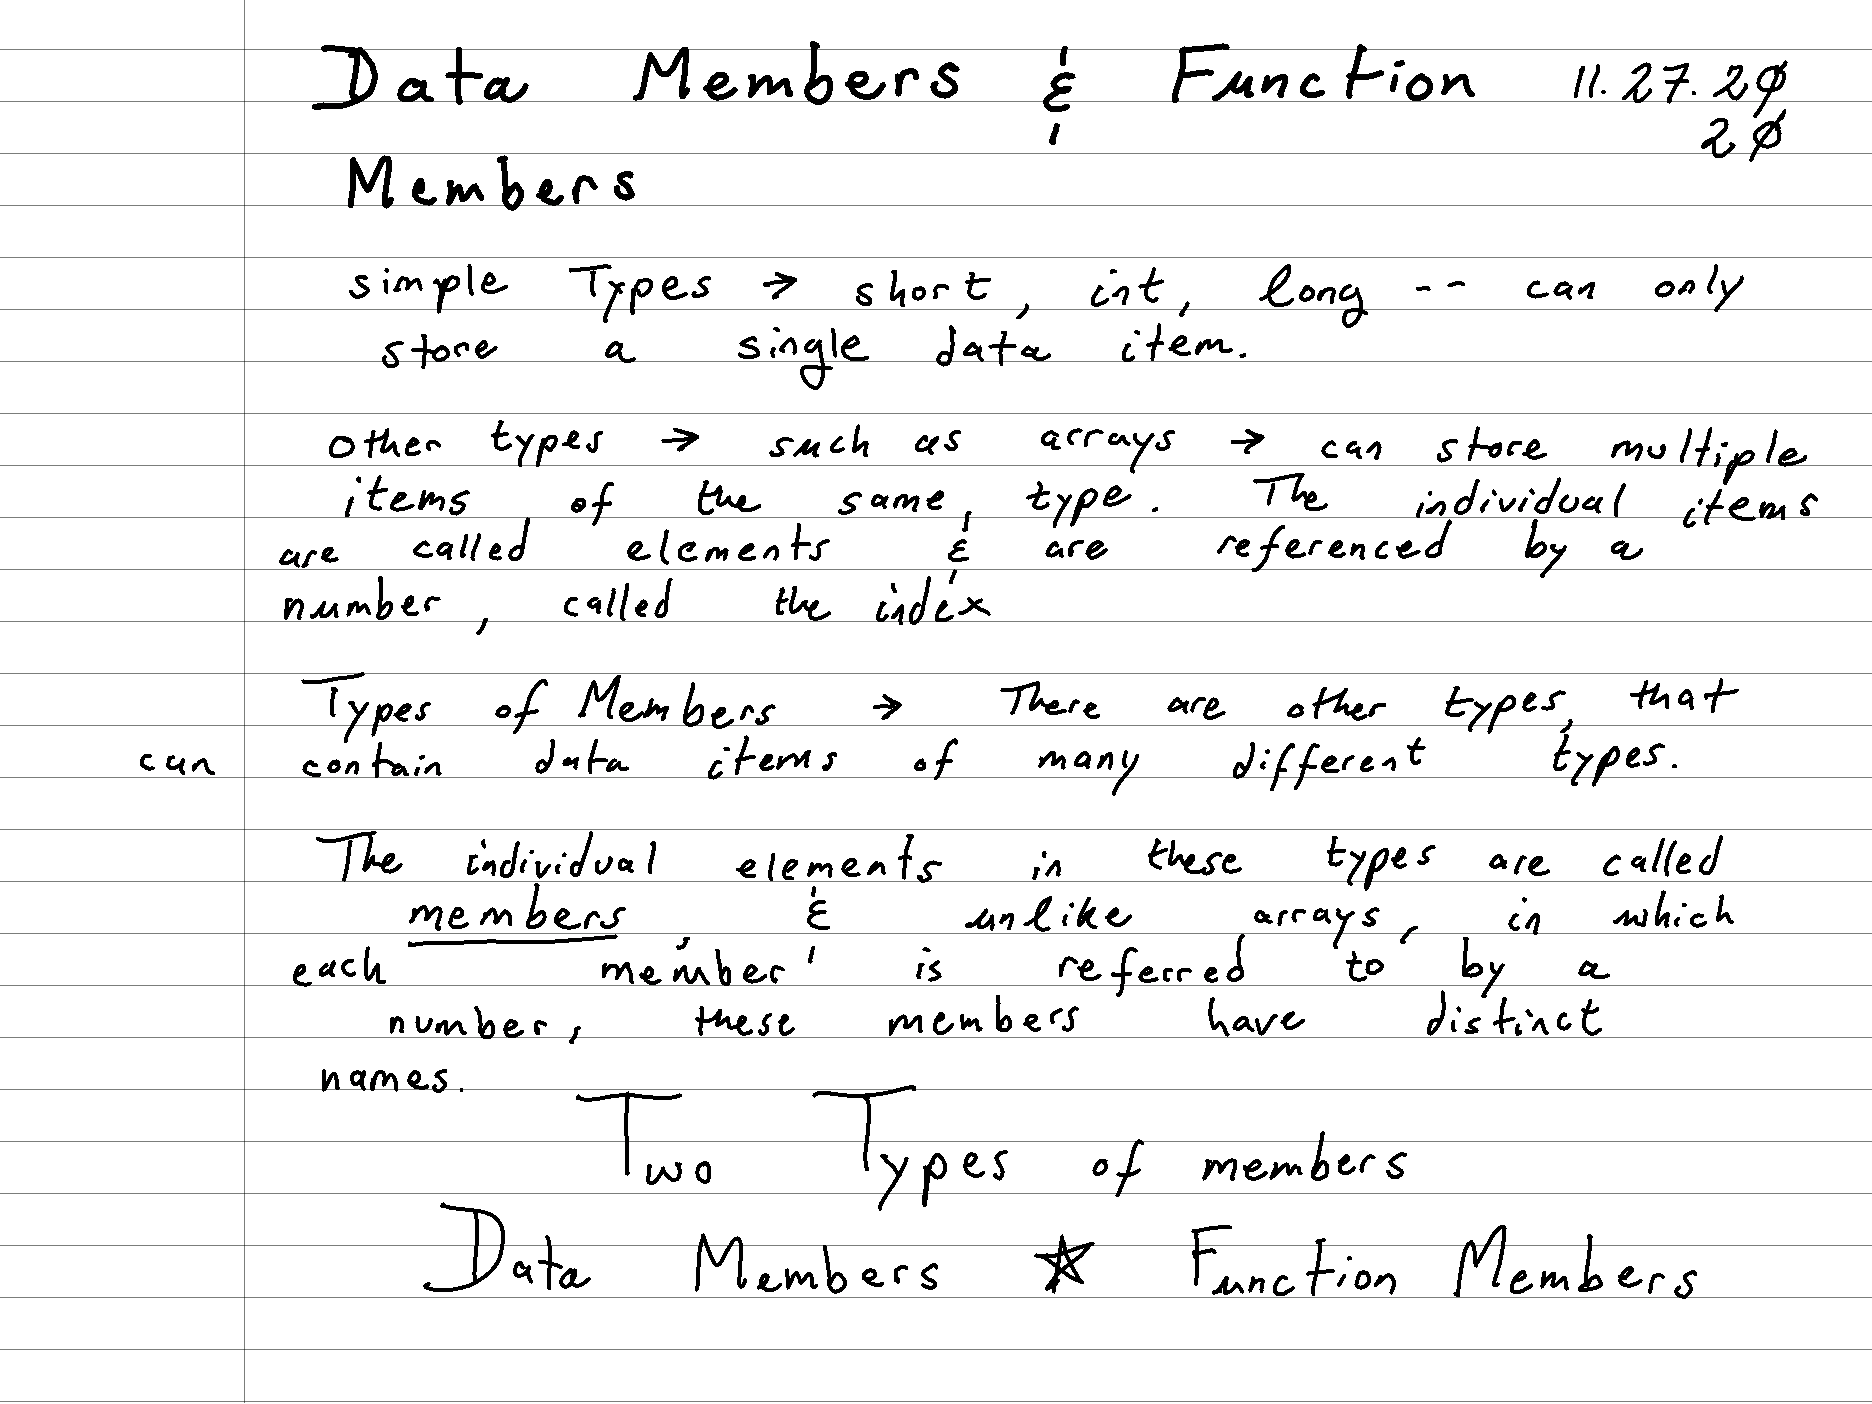 Data Members & Function 11.27.20
20
Members
simple Types → short, int, long -- can only
store a single data item.
other types → such as arrays → can store multiple
items of the same type. The individual items
are called elements & are referenced by a
number, called the index
Types of Members → There are other types, that
can contain data items of many different types.
The individual elements in these types are called
members, & unlike arrays, in which
each member is referred to by a
number, these members have distinct
names.
Two Types of members
Data Members ☆ Function Members